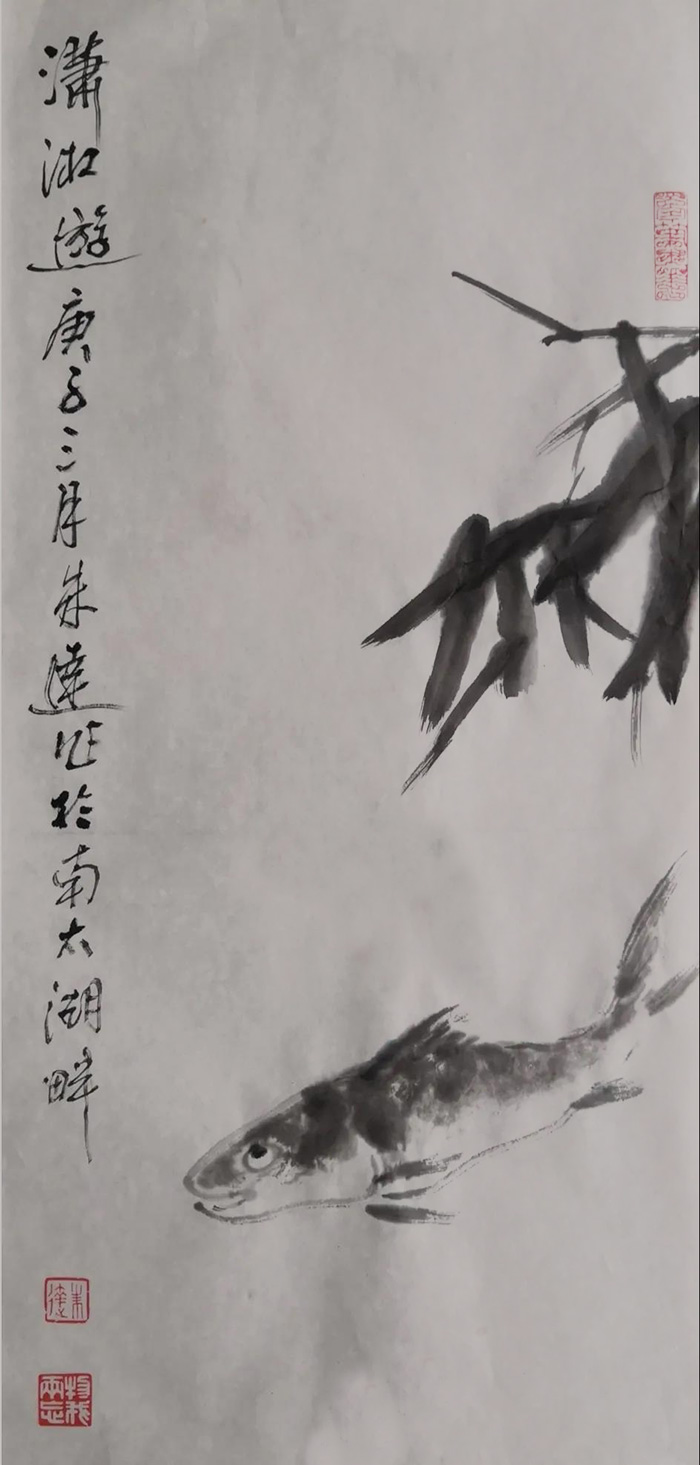 瀟湘遊庚子三月朱達作於南太湖畔
朱達
物我兩忘